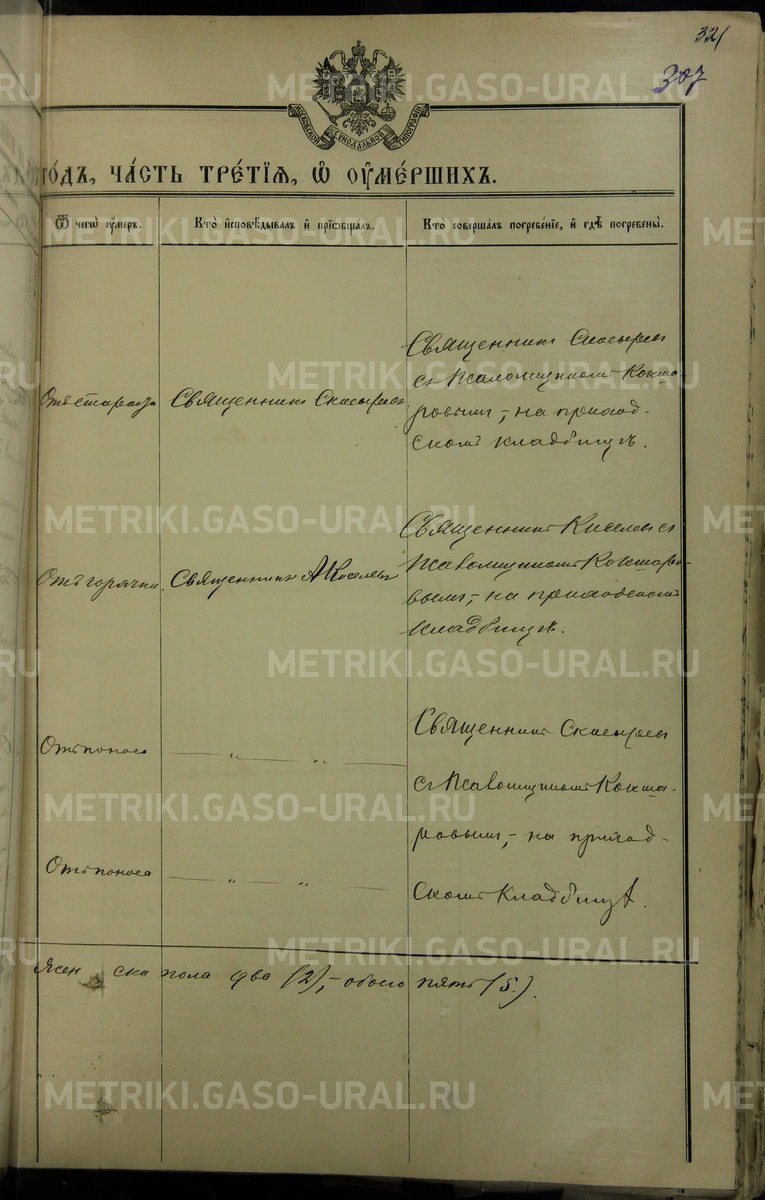 321
307
МОСКОВСКОЙ СѴНОДАЛЬНОЙ ТИПОГРАФІИ
го́дъ, ча́сть тре́тїѧ, ѡ҆ ᲂу҆ме́ршихъ.
Ѿ чегѡ̀ ᲂу҆́меръ.
Кто̀ и҆сповѣ́дывалъ и҆ прїѡбща́лъ.
Кто̀ соверша́лъ погребе́нїе, и҆ гдѣ̀ погребены̀.
Отъ старости
Священникъ Скосыревъ
Священникъ Скосыревъ
съ Псаломщикомъ Кокша-
ровымъ,- на приход-
скомъ кладбищѣ.
Отъ горячки.
Священникъ А Киселевъ
Священникъ Киселевъ съ
Псаломщикомъ Кокшаро-
вымъ,- на приходскомъ
кладбищѣ.
Отъ поноса
— „ „ —
Священникъ Скосыревъ
съ Псаломщикомъ Кокша-
ровымъ,- на приход-
скомъ кладбищѣ.
Отъ поноса
— „ „ —
Жен ска пола два (2),- обоего пять (5.).
METRIKI.GASO-URAL.RU